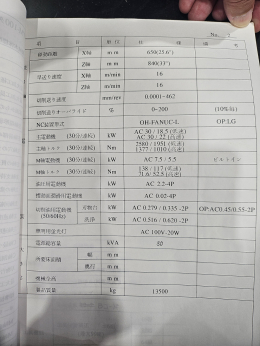 No.
項 目 単 位 仕 様 備 考
X軸 mm 650(25.6")
Z軸 mm 840(33")
早送り速度 X軸 m/min 16
Z軸 m/min 16
切削送り速度 mm/rev 0.0001~462
切削送りオーバライド % 0~200 (10%毎)
NC装置形式 OH-FANUC-L OP:LG
主電動機 (30分/連続) kW AC 30 / 18.5 (低速)
AC 30 / 22 (高速)
主軸トルク (30分/連続) Nm 2580 / 1951 (低速)
1377 / 1010 (高速)
M軸電動機 (30分/連続) kW AC 7.5 / 5.5 ビルトイン
M軸トルク (30分/連続) Nm 138 / 117 (低速)
71.6/ 52.5 (高速)
油圧用電動機 kW AC 2.2-4P
摺動面潤滑用電動機 kW AC 0.02-4P
切削油用電動機 kW AC 0.279 / 0.335 -2P OP:AC0.45/0.55-2P
(50/60Hz) 洗浄 kW AC 0.516 / 0.620 -2P
機内用蛍光灯 AC 100V-20W
電源総容量 kVA 50
所要床面積 幅 m m
奥行 m m
機械全高 m m
製品質量 kg 13500